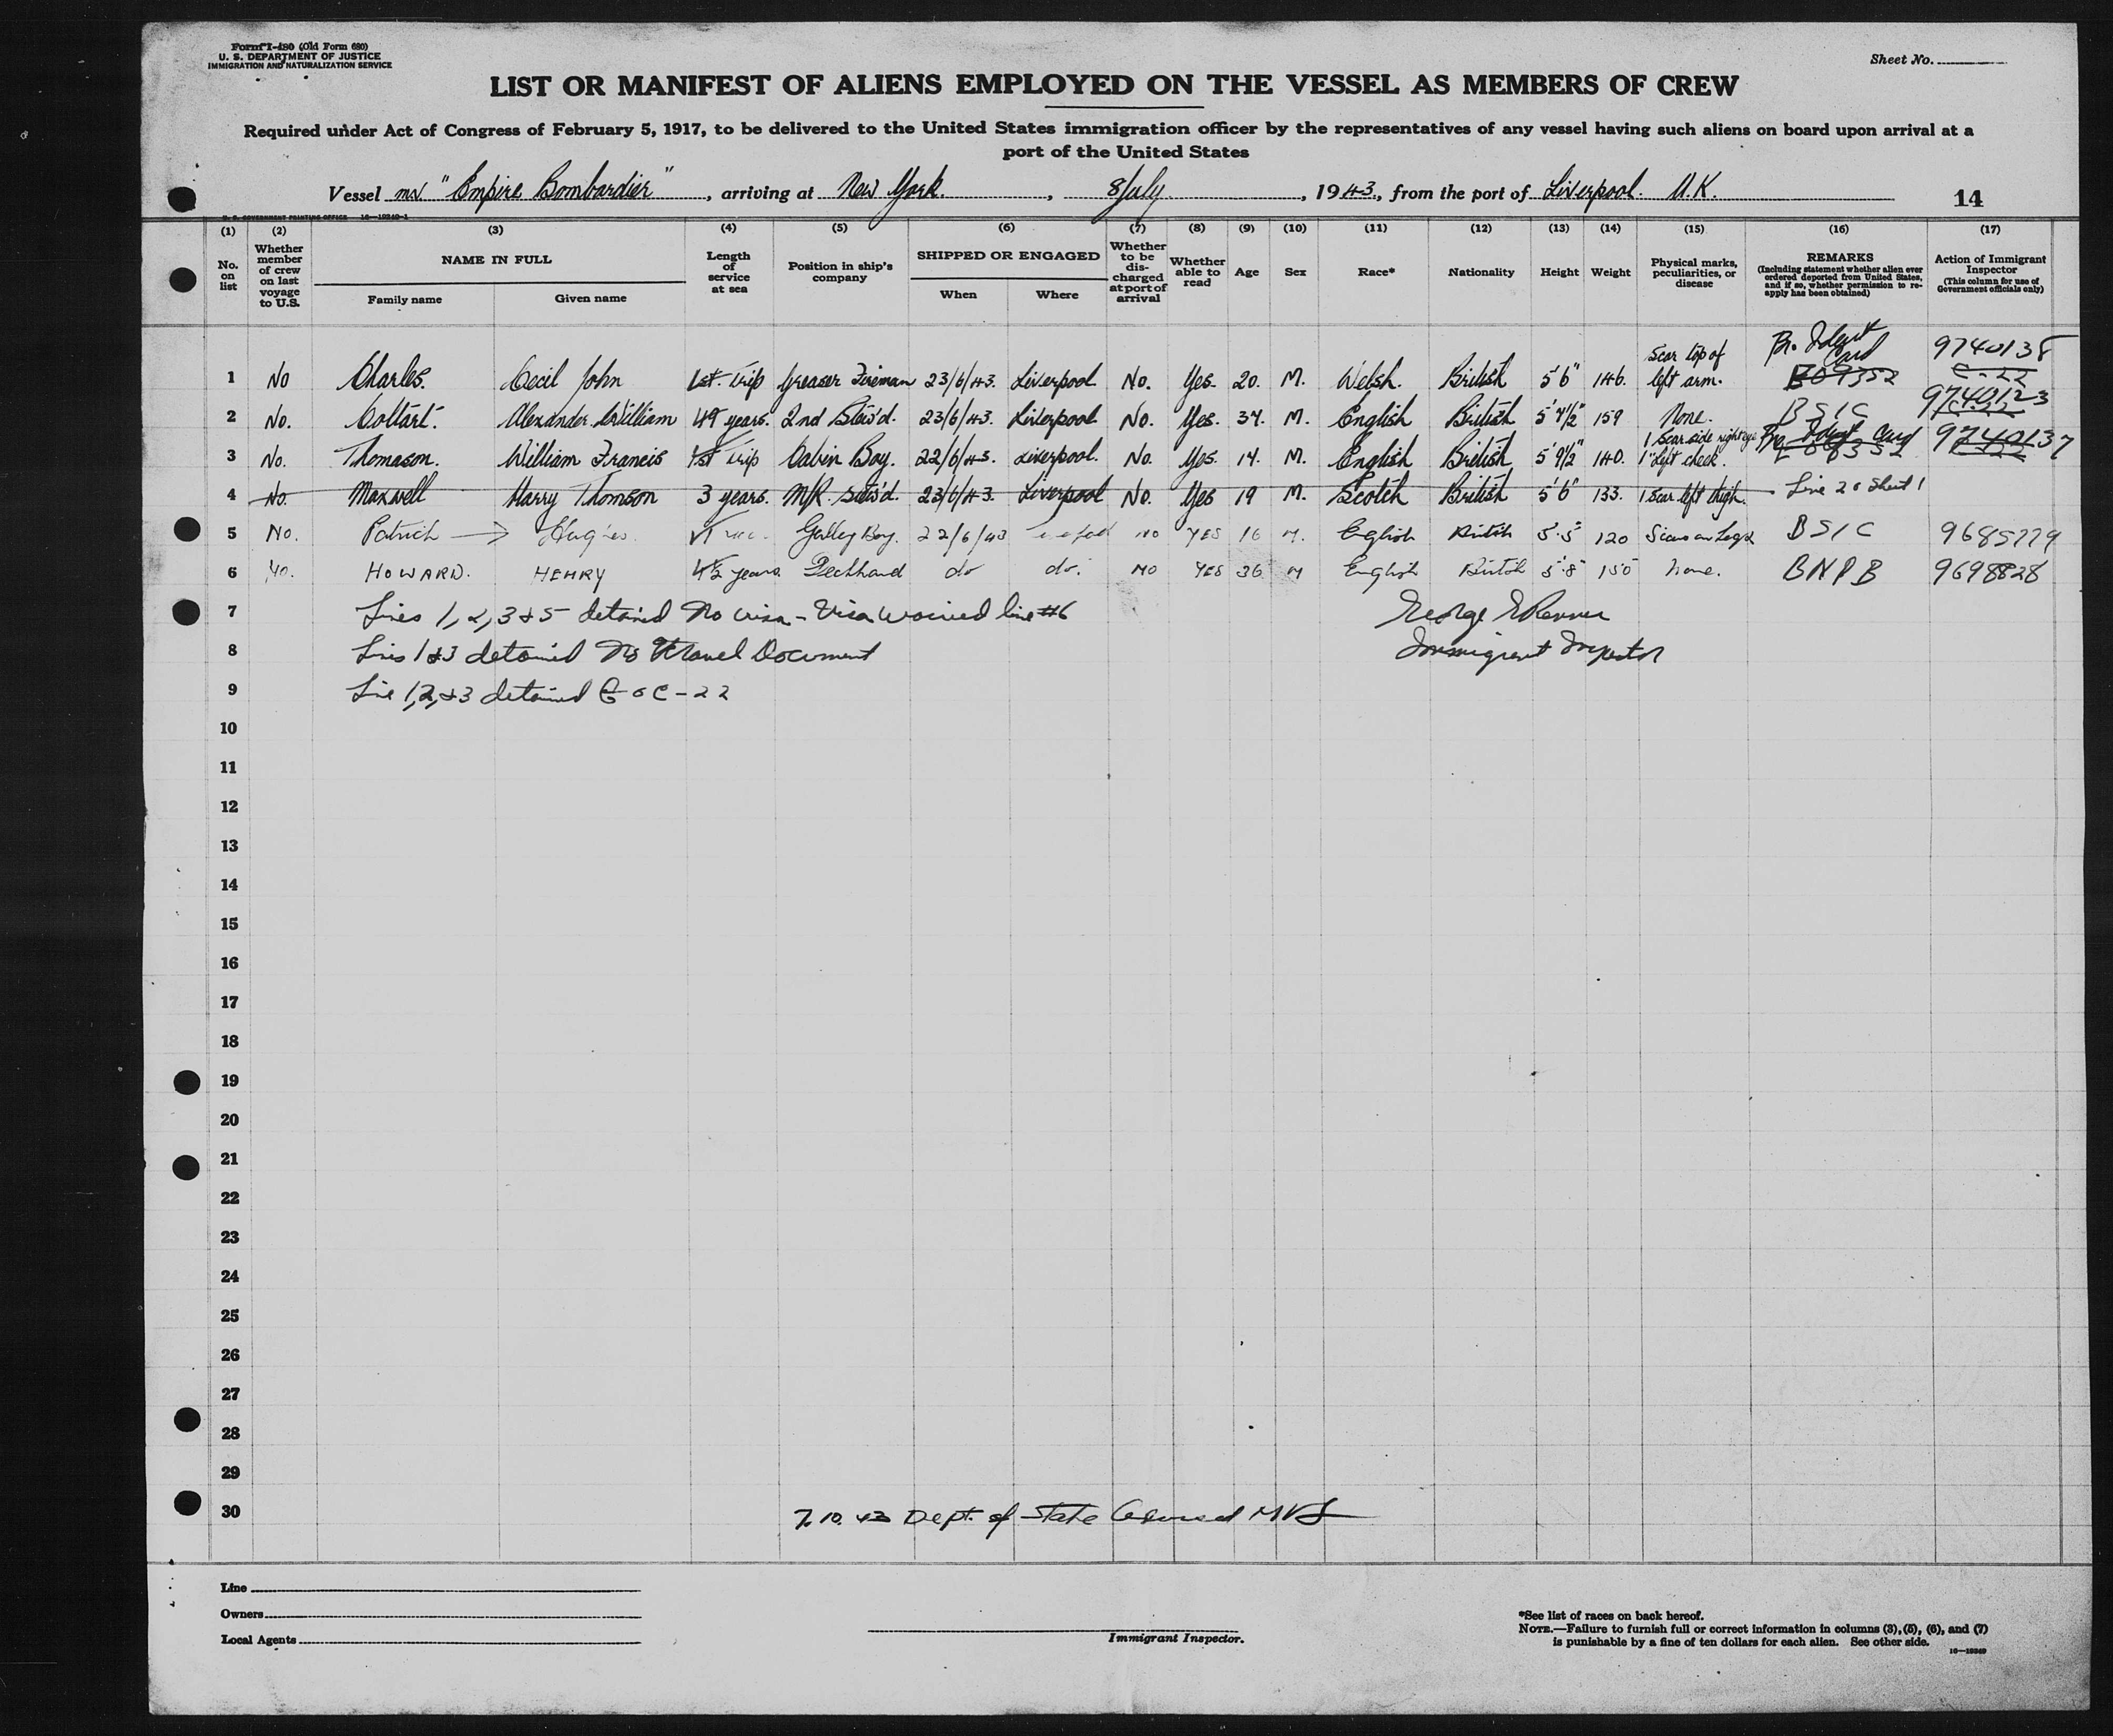 Form I-480 (Old Form 680)
U. S. DEPARTMENT OF JUSTICE
IMMIGRATION AND NATURALIZATION SERVICE
Sheet No.
LIST OR MANIFEST OF ALIENS EMPLOYED ON THE VESSEL AS MEMBERS OF CREW
Required under Act of Congress of February 5, 1917, to be delivered to the United States immigration officer by the representatives of any vessel having such aliens on board upon arrival at a
port of the United States
Vessel mv "Empire Bombardier", arriving at New York., 8/July, 1943, from the port of Liverpool. U.K.
14
U. S. GOVERNMENT PRINTING OFFICE 16—19240-1
(1) (2) (3) (4) (5) (6) (7) (8) (9) (10) (11) (12) (13) (14) (15) (16) (17)
No. on list
Whether member of crew on last voyage to U.S.
NAME IN FULL
Family name
Given name
Length of service at sea
Position in ship's company
SHIPPED OR ENGAGED
When
Where
Whether to be discharged at port of arrival
Whether able to read
Age
Sex
Race*
Nationality
Height
Weight
Physical marks, peculiarities, or disease
REMARKS
(Including statement whether alien ever ordered deported from United States, and if so, whether permission to re-apply has been obtained)
Action of Immigrant Inspector
(This column for use of Government officials only)
1 No Charles. Cecil John 1st. trip Greaser Fireman 23/6/43. Liverpool No. Yes. 20. M. Welsh. British 5'6" 146. Scar top of left arm. Br. Ident Card 9740138 C-22
2 No. Coltart. Alexander William years. 2nd Stew'd. 23/6/43. Liverpool No. Yes. 37. M. English British 159 None. BSIC 9740123
3 No. Thomason. William Francis 1st trip Cabin Boy. 22/6/43. Liverpool. No. Yes. M. English British 140. 1 Scar side right eye 1" left cheek. Br. Ident Card 9740137
4 No. Maxwell Harry Thomson 3 years. M/R. Stew'd. 23/6/43. Liverpool No. Yes 19 M. Scotch British 5'6" 133. 1 Scar left thigh. Line 26 Sheet 1
5 No. Patrick → Hughes Galley Boy. 22/6/43 no YES 16 M. English British 5'5" 120 BSIC 9685779
6 No. HOWARD. HENRY 4½ years Deckhand do do. NO YES 36 M English British 5'8" 150 None. BNPB 9698828
7 Lines 1, 2, 3 & 5 detained No visa - Visa waived line #6
8 Lines 1 & 3 detained No Travel Document Immigrant Inspector
9 Line 1, 2, & 3 detained C-22
10
11
12
13
14
15
16
17
18
19
20
21
22
23
24
25
26
27
28
29
30 7.10.43 Dept. of State
Line
Owners
Local Agents
Immigrant Inspector.
*See list of races on back hereof.
NOTE.—Failure to furnish full or correct information in columns (3), (5), (6), and (7)
is punishable by a fine of ten dollars for each alien. See other side.
16—19240